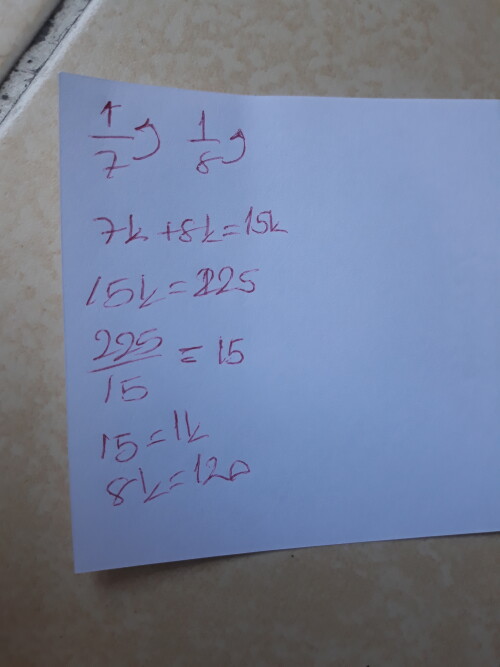 1/7 1/8
7k+8k=15k
15k=225
225/15 = 15
15=1k
8k=120